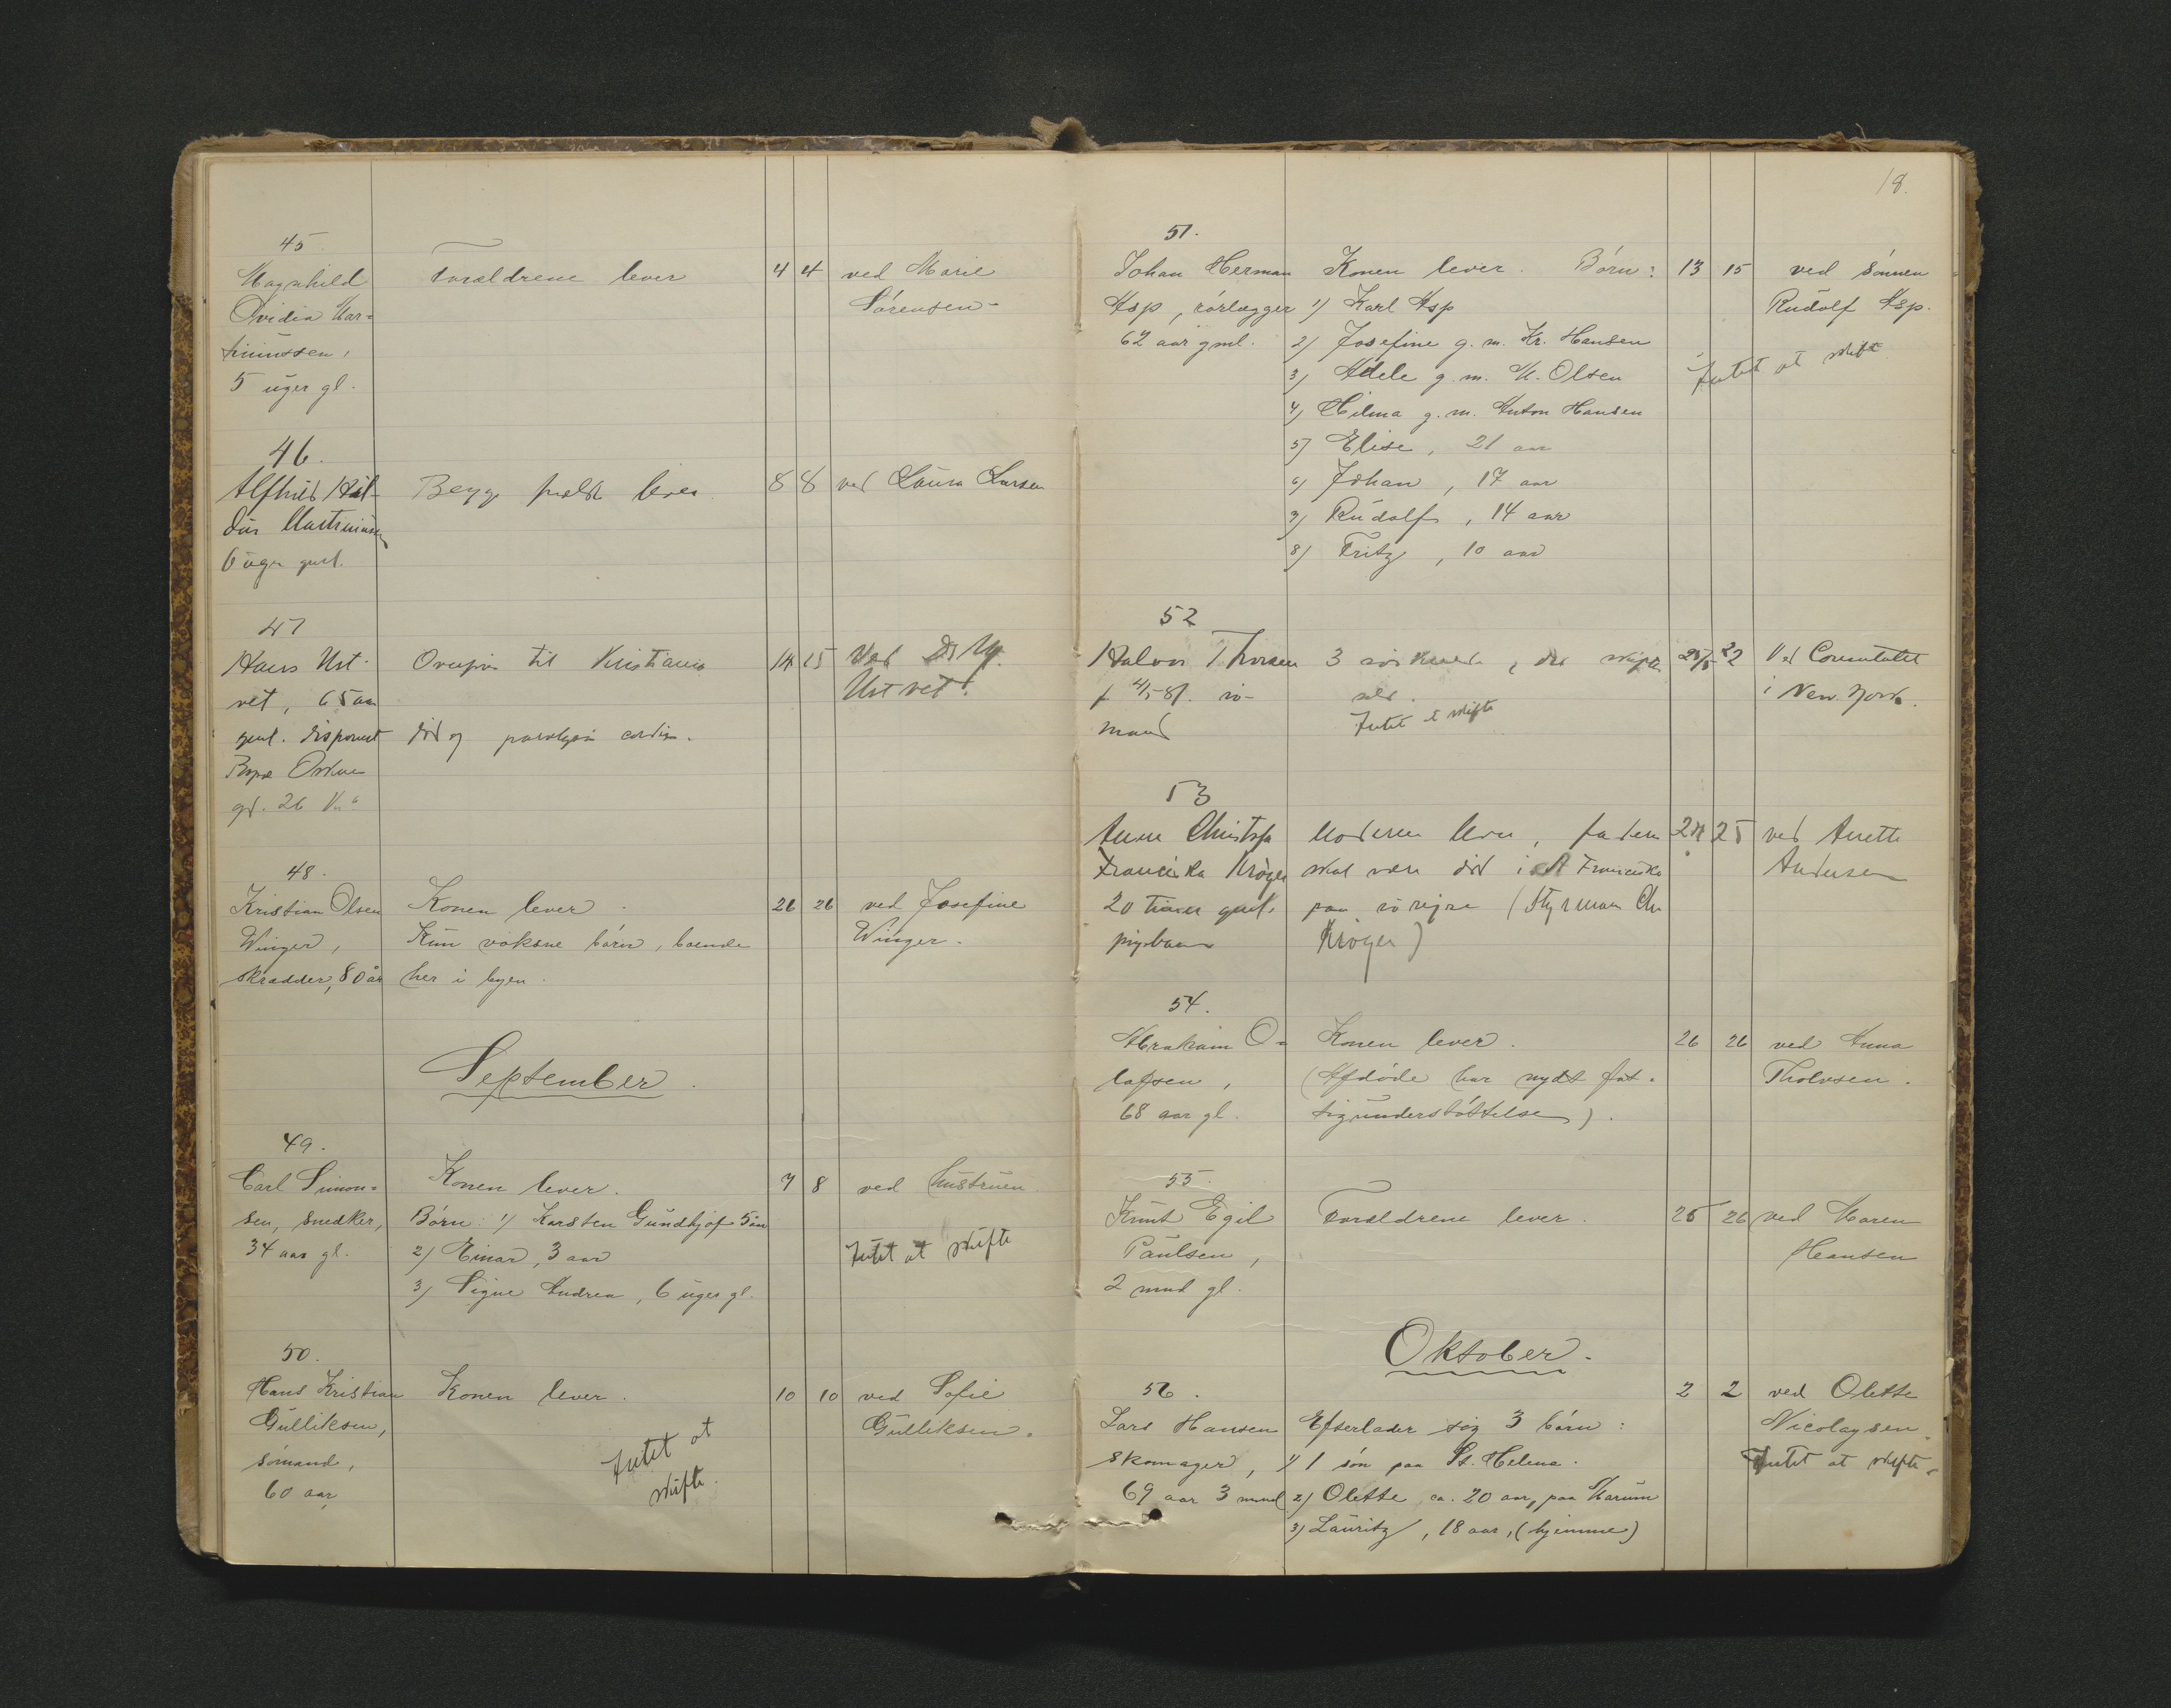 45.
Magnhild Forældrene lever 4 4 ved Marie
Ovidia Mar= Sørensen
tiniussen,
5 uger gl.
46.
Alfhild Begge lever 8 8 ved Laura Larsen
6 uger gml.
47
Hans Ust- til Kristiania 14 15 Ved
vet, 65 aar Ustvet.
gml. død
gd. 26
48.
Kristian Olsen Konen lever. 26 26 ved Josefine
Winger, Kun voksne børn, boende Winger.
skrædder, 80 år her i byen.
September.
49.
Carl Simon= Konen lever. 7 8 ved hustruen.
sen, snedker, Børn: 1) Karsten Gundhjof 5 aar
34 aar gl. 2) Einar, 3 aar Intet at skifte
3) Signe Andrea, 6 uger gl.
50.
Hans Kristian Konen lever. 10 10 ved Sofie
Gulliksen, Gulliksen.
sømand, Intet at
60 aar skifte.
18.
51.
Johan Herman Konen lever. Børn: 13 15 ved sønnen
Asp, rørlægger 1) Karl Asp Rudolf Asp.
62 aar gml. 2) Josefine g. m. Kr. Hansen
3) Adele g. m. M. Olsen Intet at skifte
4) Hilma g. m. Anton Hansen
5) Elise, 21 aar
6) Johan, 17 aar
7) Rudolf, 14 aar
8) Fritz, 10 aar
52
Halvor Thorsen 3 søskende, 25/5 22 Ved Consulatet
f 4/5 81. sø- i New York.
mand Intet at skifte
53
Anne Moderen lever, faderen 24 25 ved Anette
Franciska Krøger skal være død i St Francisko Andersen
20 timer gml. paa sørejse (Styrmann Chr
pigebarn Krøger)
54.
Abraham O= Konen lever. 26 26 ved Anna
lafsen, (Afdøde har nydt fat= Tholvsen.
68 aar gl. tigunderstøttelse).
55.
Knut Egil Forældrene lever. 25 26 ved Maren
Paulsen, Hansen
2 mnd gl.
Oktober.
56. 2 2 ved Olette
Lars Hansen Efterlader sig 3 børn: Nicolaysen.
skomager, 1) 1 søn paa St. Helena. Intet at skifte.
69 aar 3 mnd 2) Olette, ca. 20 aar, paa Karum
3) Lauritz, 18 aar, (hjemme)